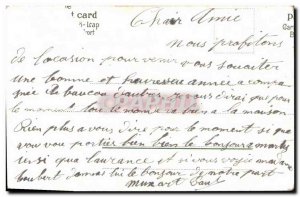 t card
s-leap
fort
Chair Amie
nous profitons
de locasion pour venir vous souaiter
une bonne et heureuse année acompa
gnée de baucou dautres je vous dirai que pour
le moment tou le monde va bien a la maison
Rien plus a vous dire pour le moment se que
vou vou portier bien bien le bonjour a
insi que laurance et si vous voyie madame
donas lui le bonjour de notre part
Paul